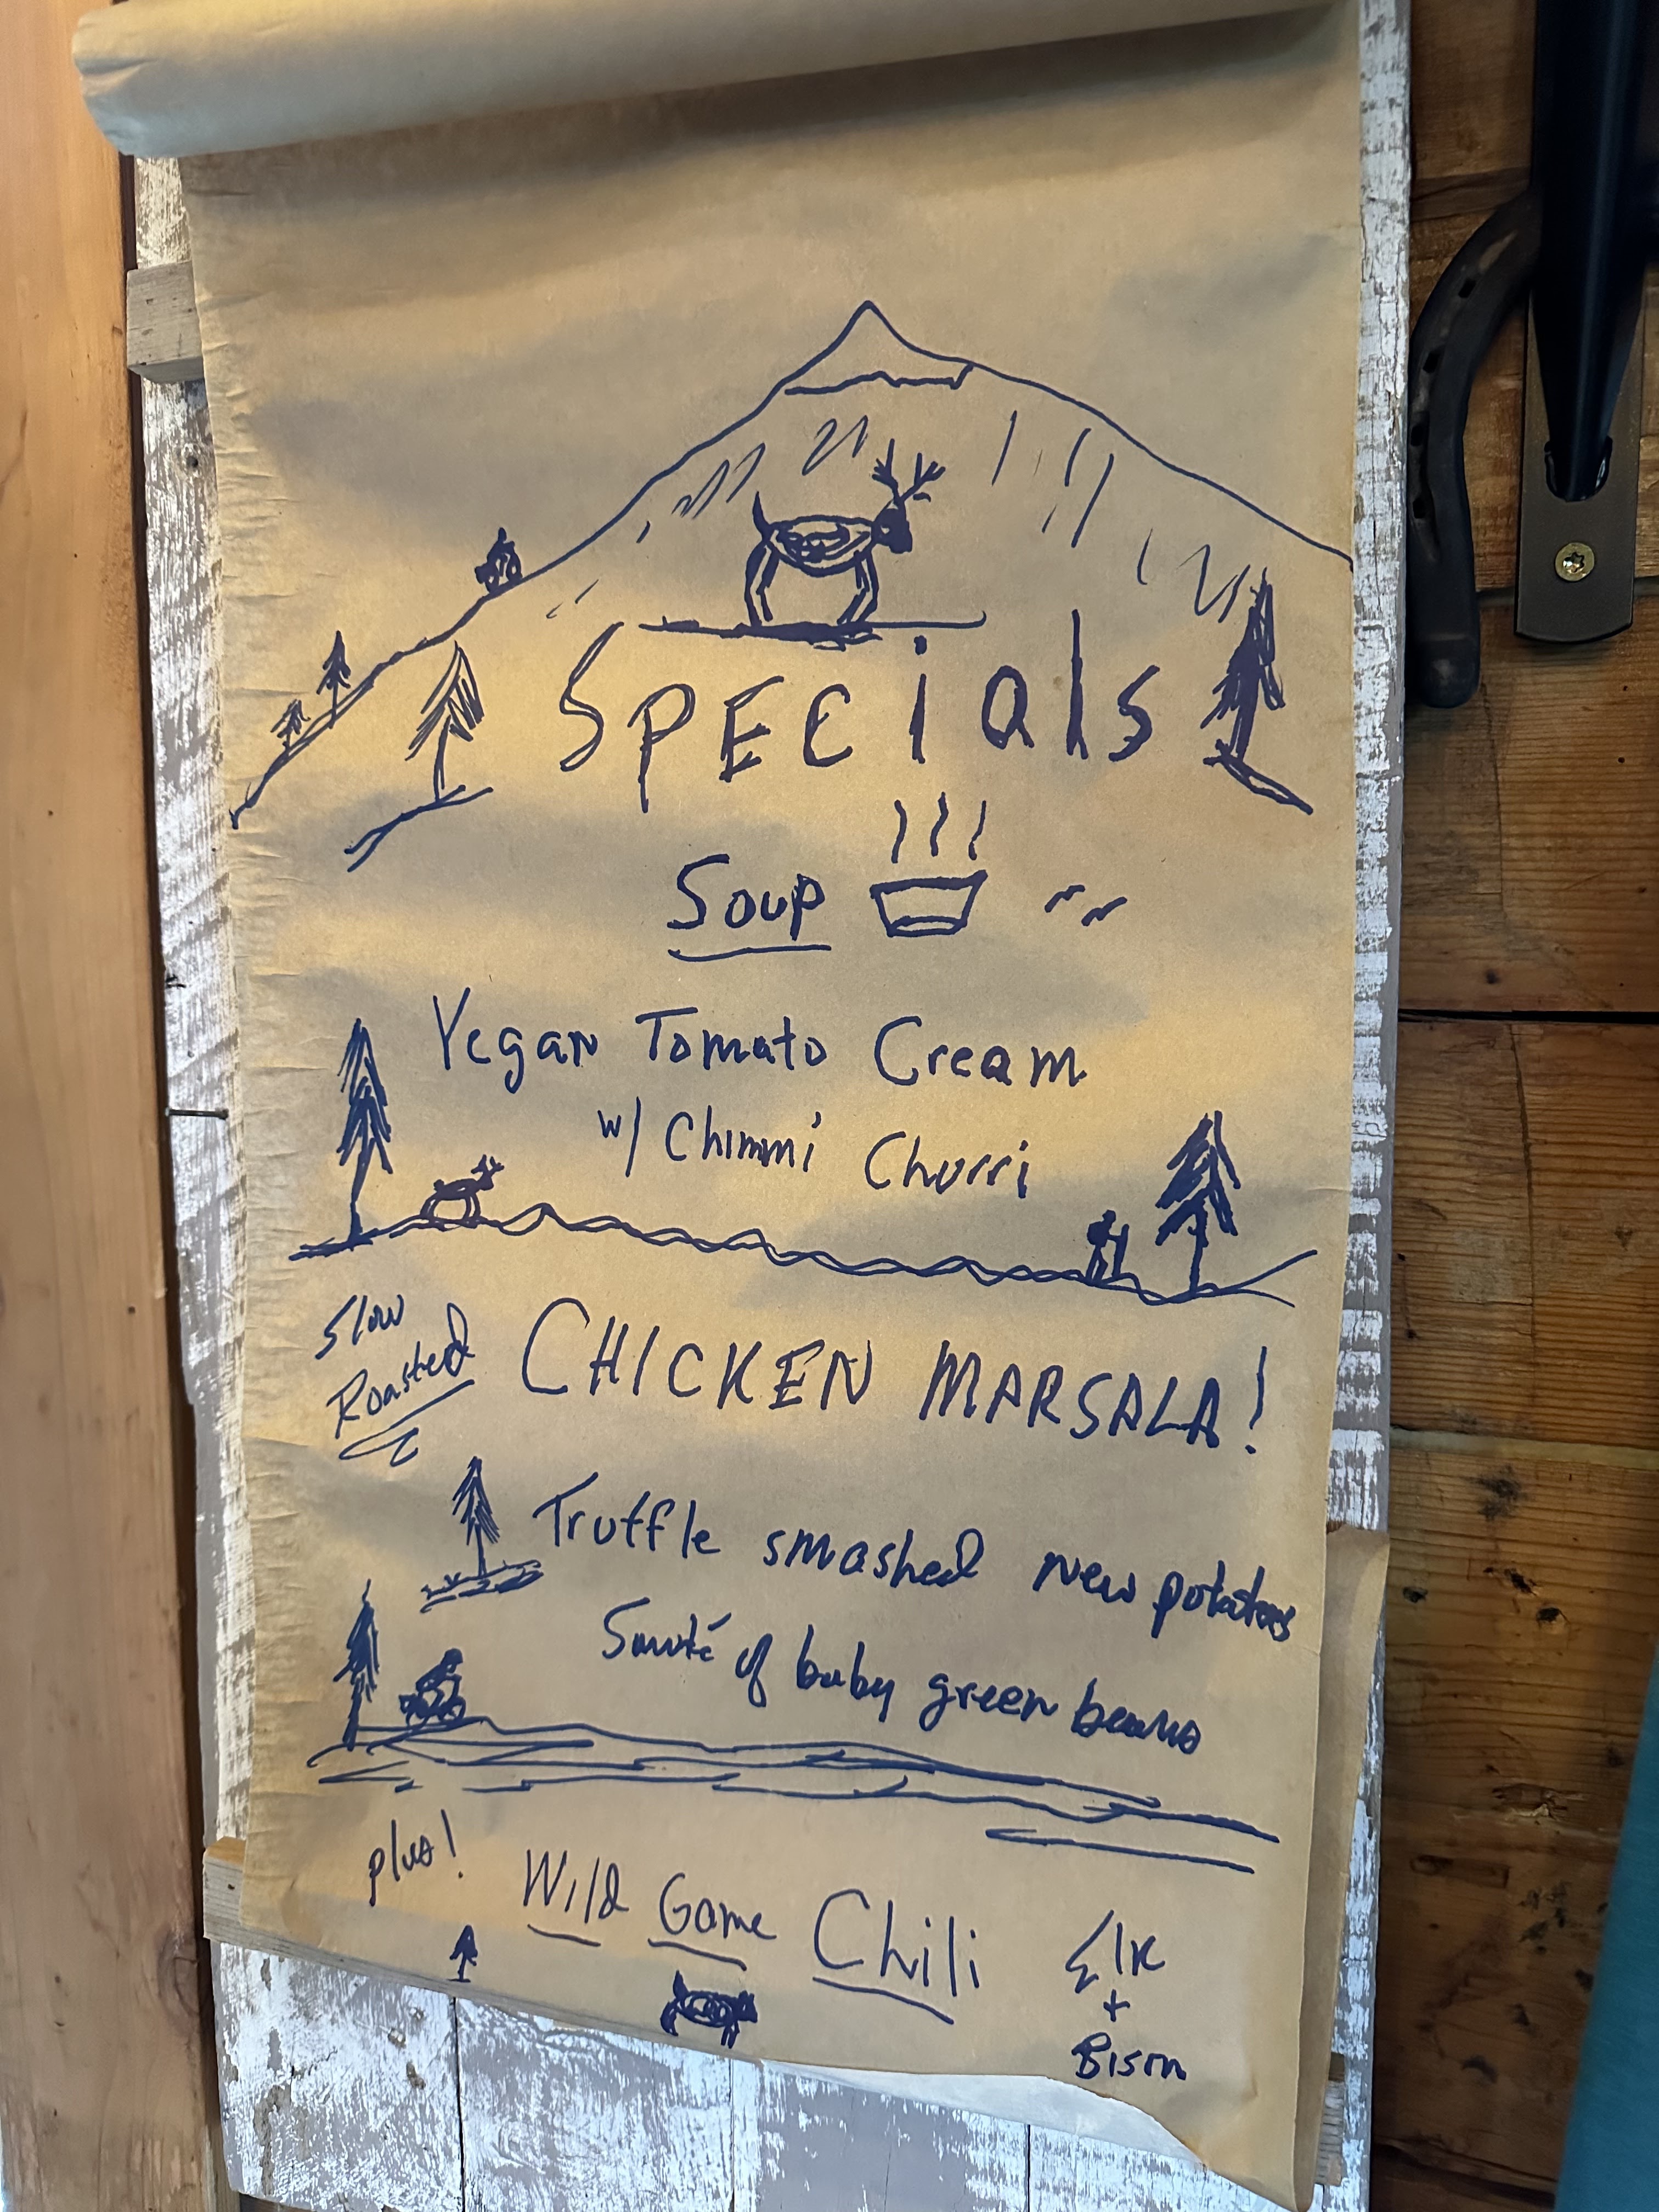 SPECials
Soup
Vegan Tomato Cream
w/ Chimmi Churri
Slow
Roasted
CHICKEN MARSALA!
Truffle smashed new potatoes
Sauté of baby green beans
plus!
Wild Game Chili
Elk
+
Bison